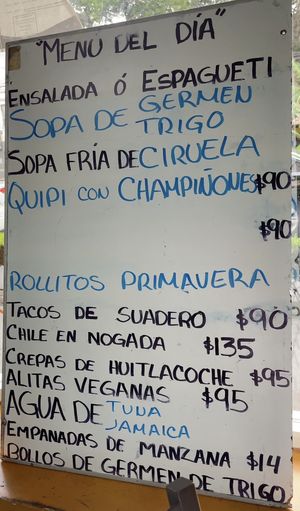 "MENÚ DEL DÍA"
ENSALADA Ó ESPAGUETI
SOPA DE GERMEN
TRIGO
SOPA FRÍA DE CIRUELA
QUIPI CON CHAMPIÑONES $90
$90
ROLLITOS PRIMAVERA
TACOS DE SUADERO $90
CHILE EN NOGADA $135
CREPAS DE HUITLACOCHE $95
ALITAS VEGANAS $95
AGUA DE TUNA
JAMAICA
EMPANADAS DE MANZANA $14
BOLLOS DE GERMEN DE TRIGO